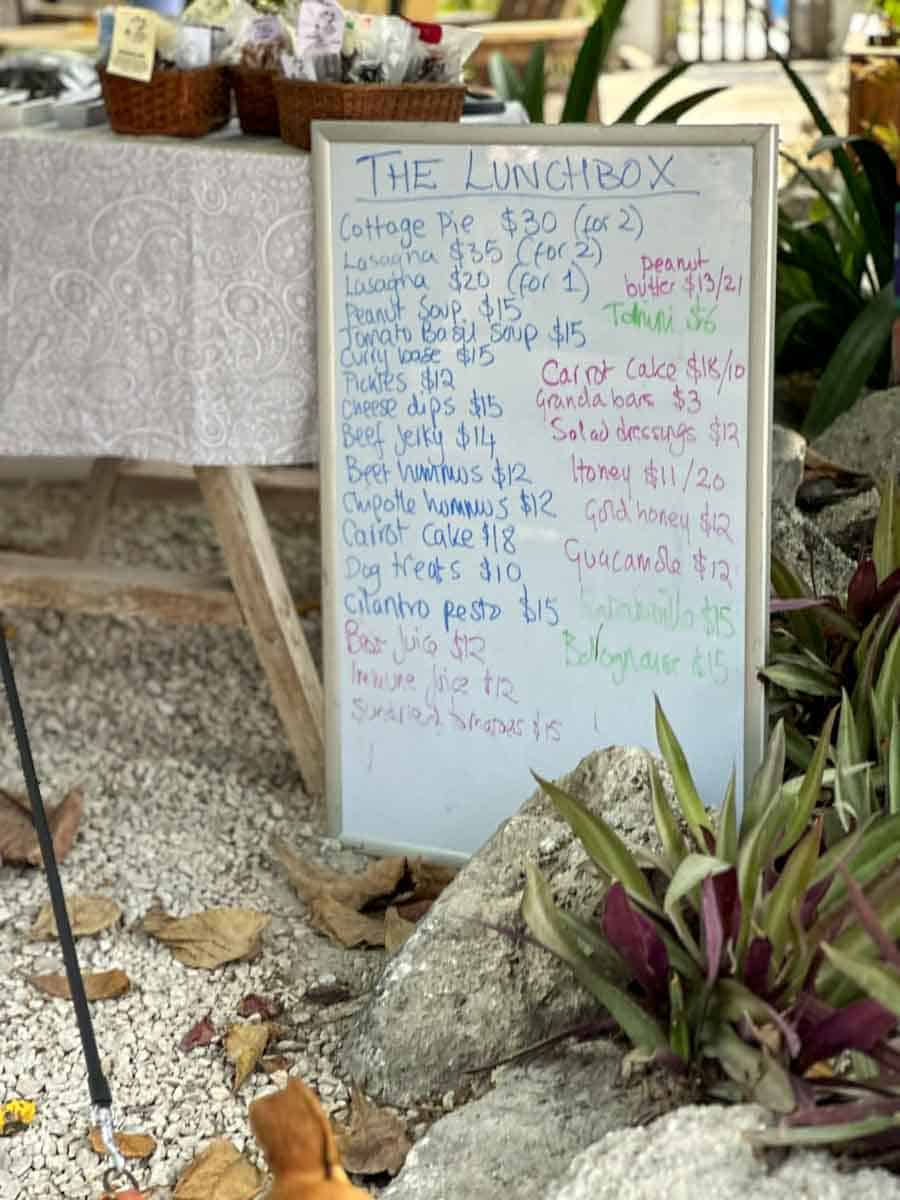 THE LUNCHBOX
Cottage Pie $30 (for 2)
Lasagna $35 (for 2)
Lasagna $20 (for 1)
Peanut Soup $15
Tomato Basil Soup $15
Curry base $15
Pickles $12
Cheese dips $15
Beef Jerky $14
Beet hummus $12
Chipotle hommus $12
Carrot Cake $18
Dog treats $10
Cilantro pesto $15
Juice $12
Immune Juice $12
Sundried tomatoes $15
Peanut
butter $13/21
Tahini $6
Carrot Cake $18/10
Granola bars $3
Salad dressings $12
Honey $11/20
Gold honey $12
Guacamole $12
$15
$15